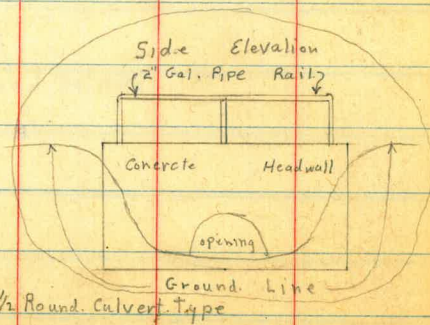 Side Elevation
2" Gal. Pipe Rail
Concrete Headwall
opening
Ground Line
1/2 Round. Culvert. Type